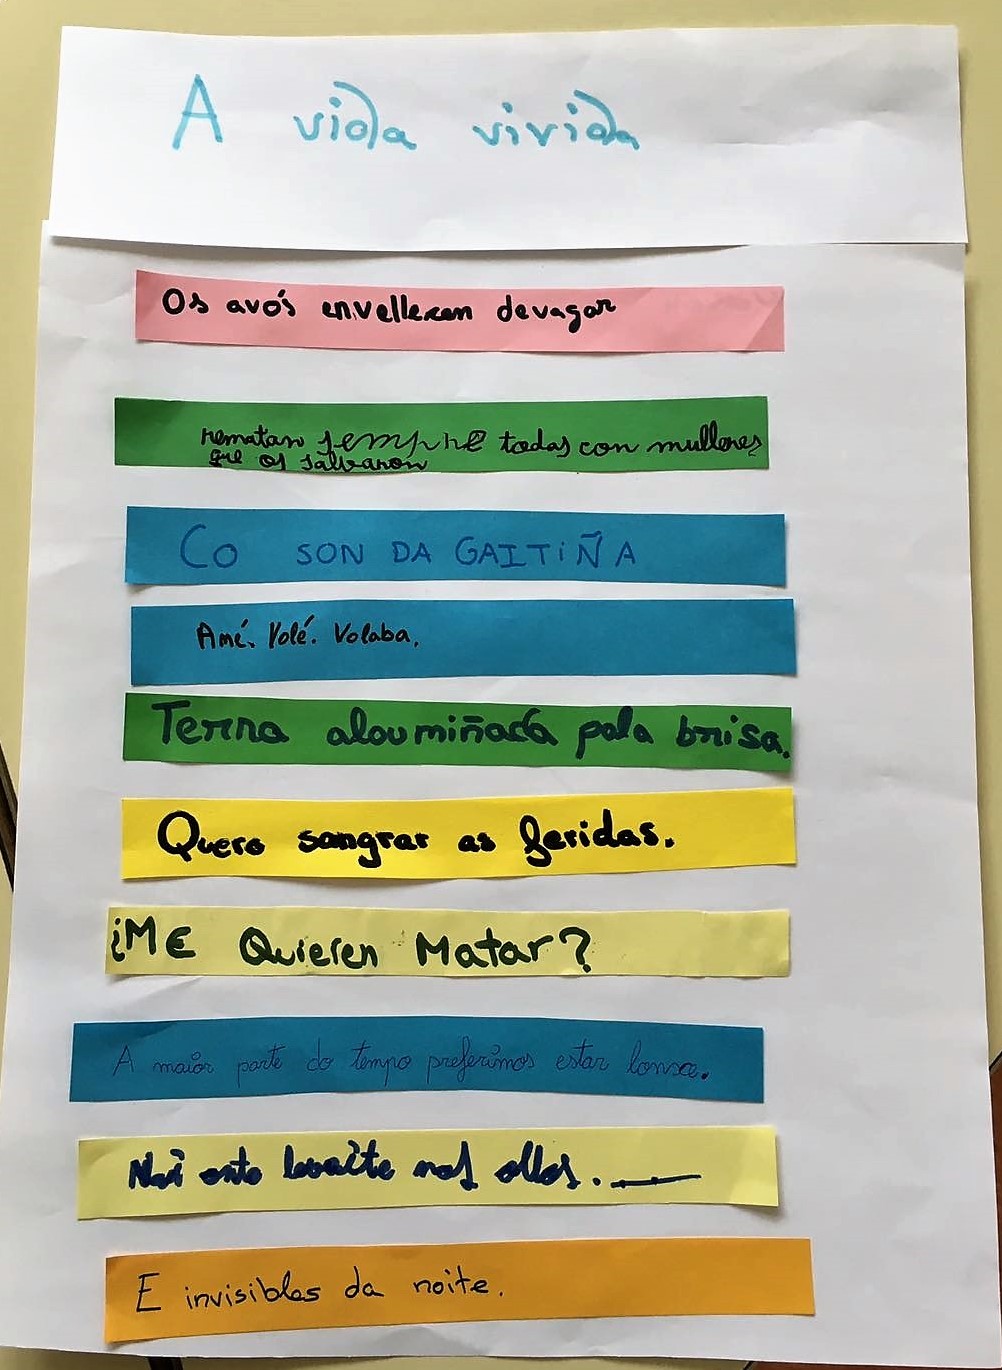 A vida vivida
Os avós envellecen devagar
rematan sempre todas con mulleres
que os salvaron
CO SON DA GAITIÑA
Amé. Volé. Volaba.
Terra aloumiñada pola brisa.
Quero sangrar as feridas.
¡ME Quieren Matar?
A maior parte do tempo preferimos estar lonxe.
Nai onte leveite nos ollos.
E invisibles da noite.